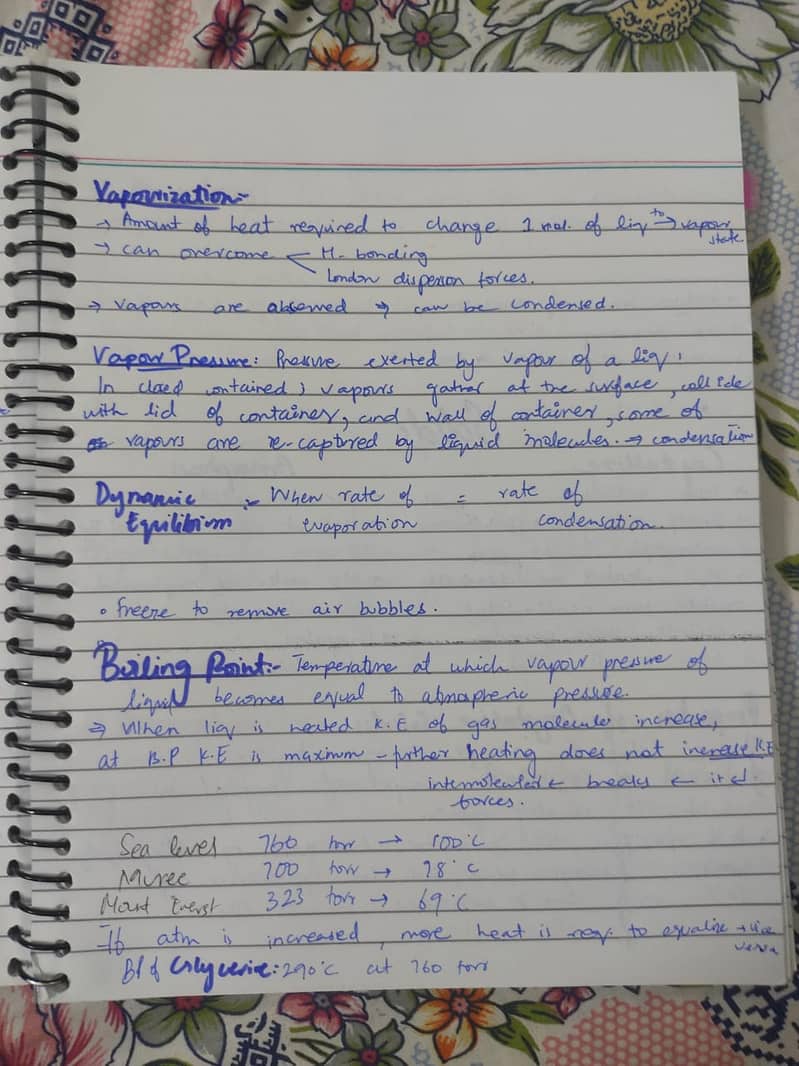 Vapourization:-
→ Amount of heat required to change 1 mol. of liq to → vapour state.
→ can overcome H-bonding
London disperson forces.
→ Vapours are absorbed → can be condensed.
Vapour Pressure: Pressure exerted by vapour of a liq.
In closed contained; vapours gather at the surface, collide
with lid of container, and wall of container, some of
vapours are re-captured by liquid molecules. → condensation
Dynamic :- When rate of = rate of
Equilibium evaporation condensation.
• freeze to remove air bubbles.
Boiling Point:- Temperature at which vapour pressure of
liquid becomes equal to atmospheric pressure.
⇒ When liq is heated K.E of gas molecules increase,
at B.P K.E is maximum - further heating does not increase K.E
intermolecular ← breaks ← it
forces.
Sea level 760 torr → 100°C
Muree 700 torr → 98°C
Mount Everst 323 torr → 69°C
If atm is increased, more heat is req. to equalize → vice versa
BP of Glycerine: 290°C at 760 torr